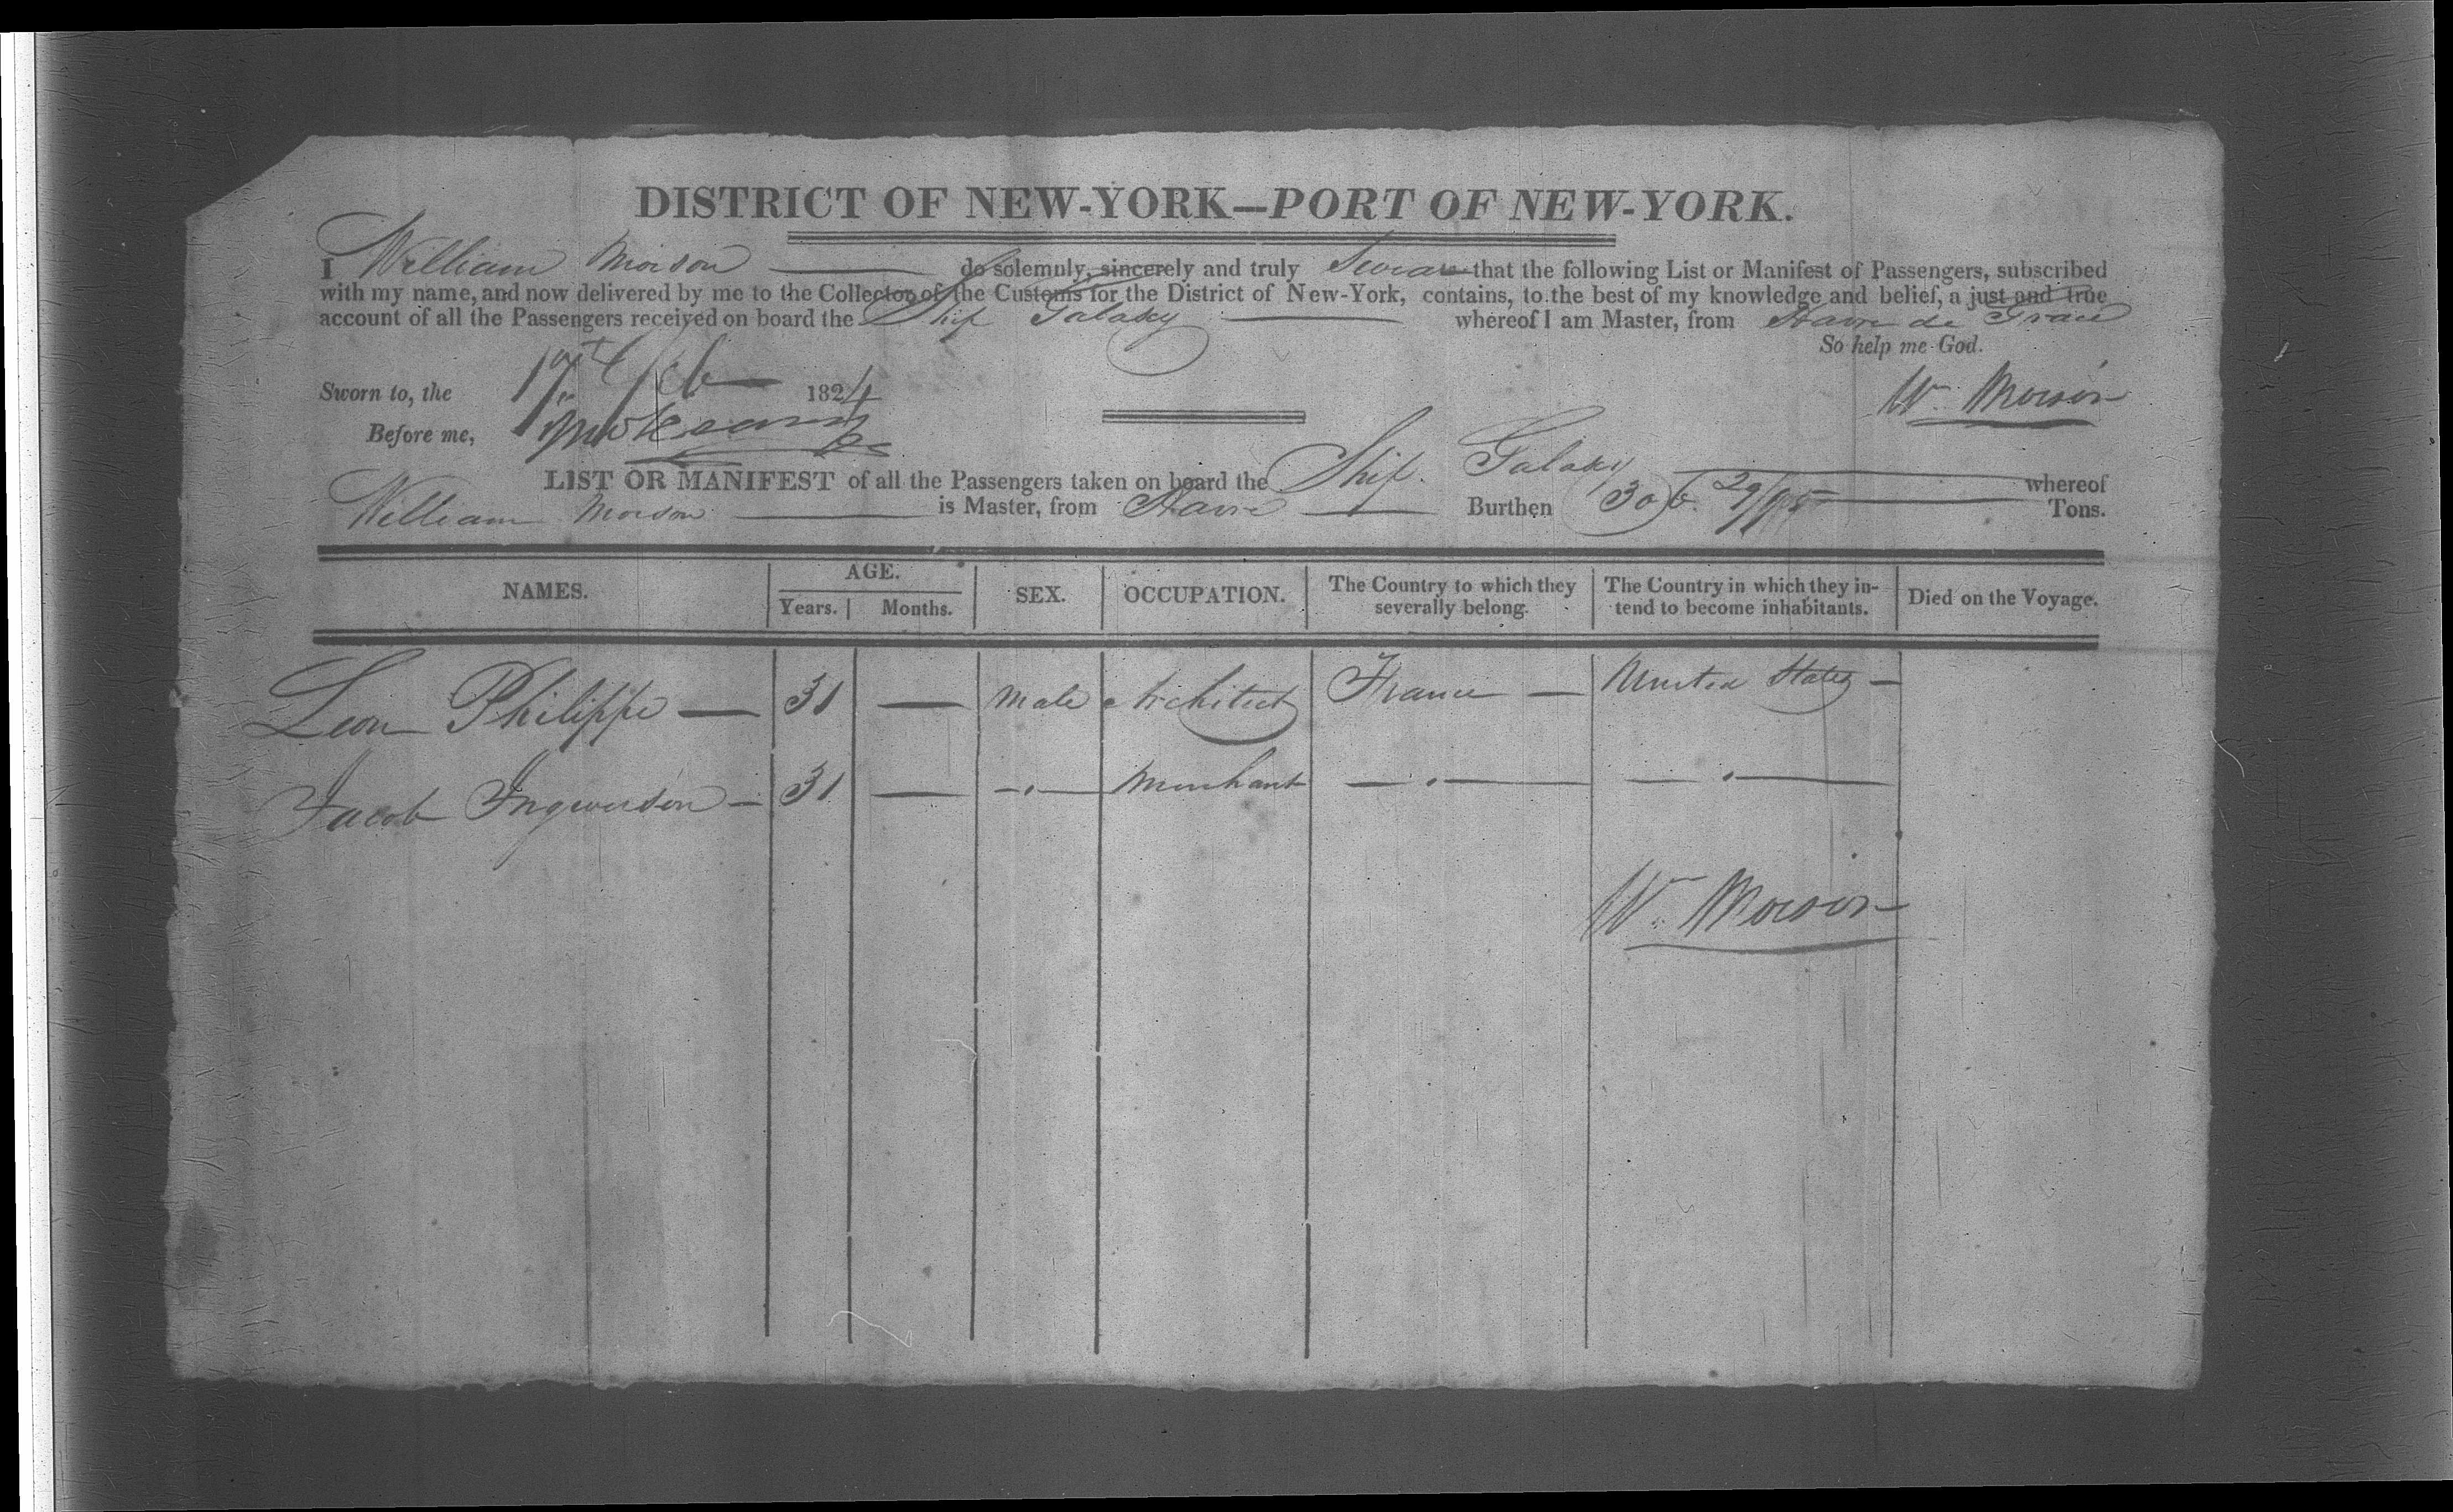 DISTRICT OF NEW-YORK—PORT OF NEW-YORK.
I William Morson do solemnly, sincerely and truly Swear that the following List or Manifest of Passengers, subscribed
with my name, and now delivered by me to the Collector of the Customs for the District of New-York, contains, to the best of my knowledge and belief, a just and true
account of all the Passengers received on board the Ship Galaxy whereof I am Master, from Havre de Grace
So help me God.
Sworn to, the 17th Feb 1824
Wm Morson
Before me,
LIST OR MANIFEST of all the Passengers taken on board the Ship Galaxy whereof
William Morson is Master, from Havre Burthen 306 29/95 Tons.
NAMES. AGE. Years. Months. SEX. OCCUPATION. The Country to which they severally belong. The Country in which they intend to become inhabitants. Died on the Voyage.
Leon Philippe — 31 — Male Architect France — United States —
Jacob Ingwersen — 31 — — " — Merchant — " — — " —
Wm Morson